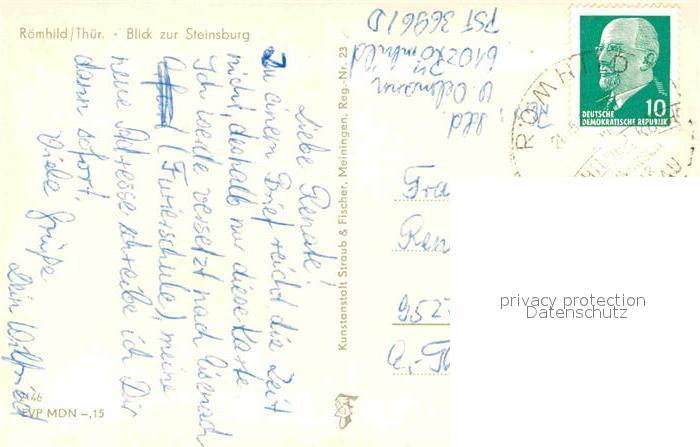 Römhild/Thür. - Blick zur Steinsburg
Liebe Renate!
Zu einem Brief reicht die Zeit
nicht, deshalb nur diese Karte
Ich werde versetzt nach Eisenach
(Furierschule), meine
neue Adresse schreibe ich Dir
dann sofort.
Viele Grüße
Dein Wilfried
146
EVP MDN -,15
Kunstanstalt Straub & Fischer, Meiningen, Reg.-Nr. 23
Abs:
6102 Römhild
PST 36961 D
DEUTSCHE
DEMOKRATISCHE REPUBLIK
10
RÖMHILD
Ren
privacy protection
Datenschutz